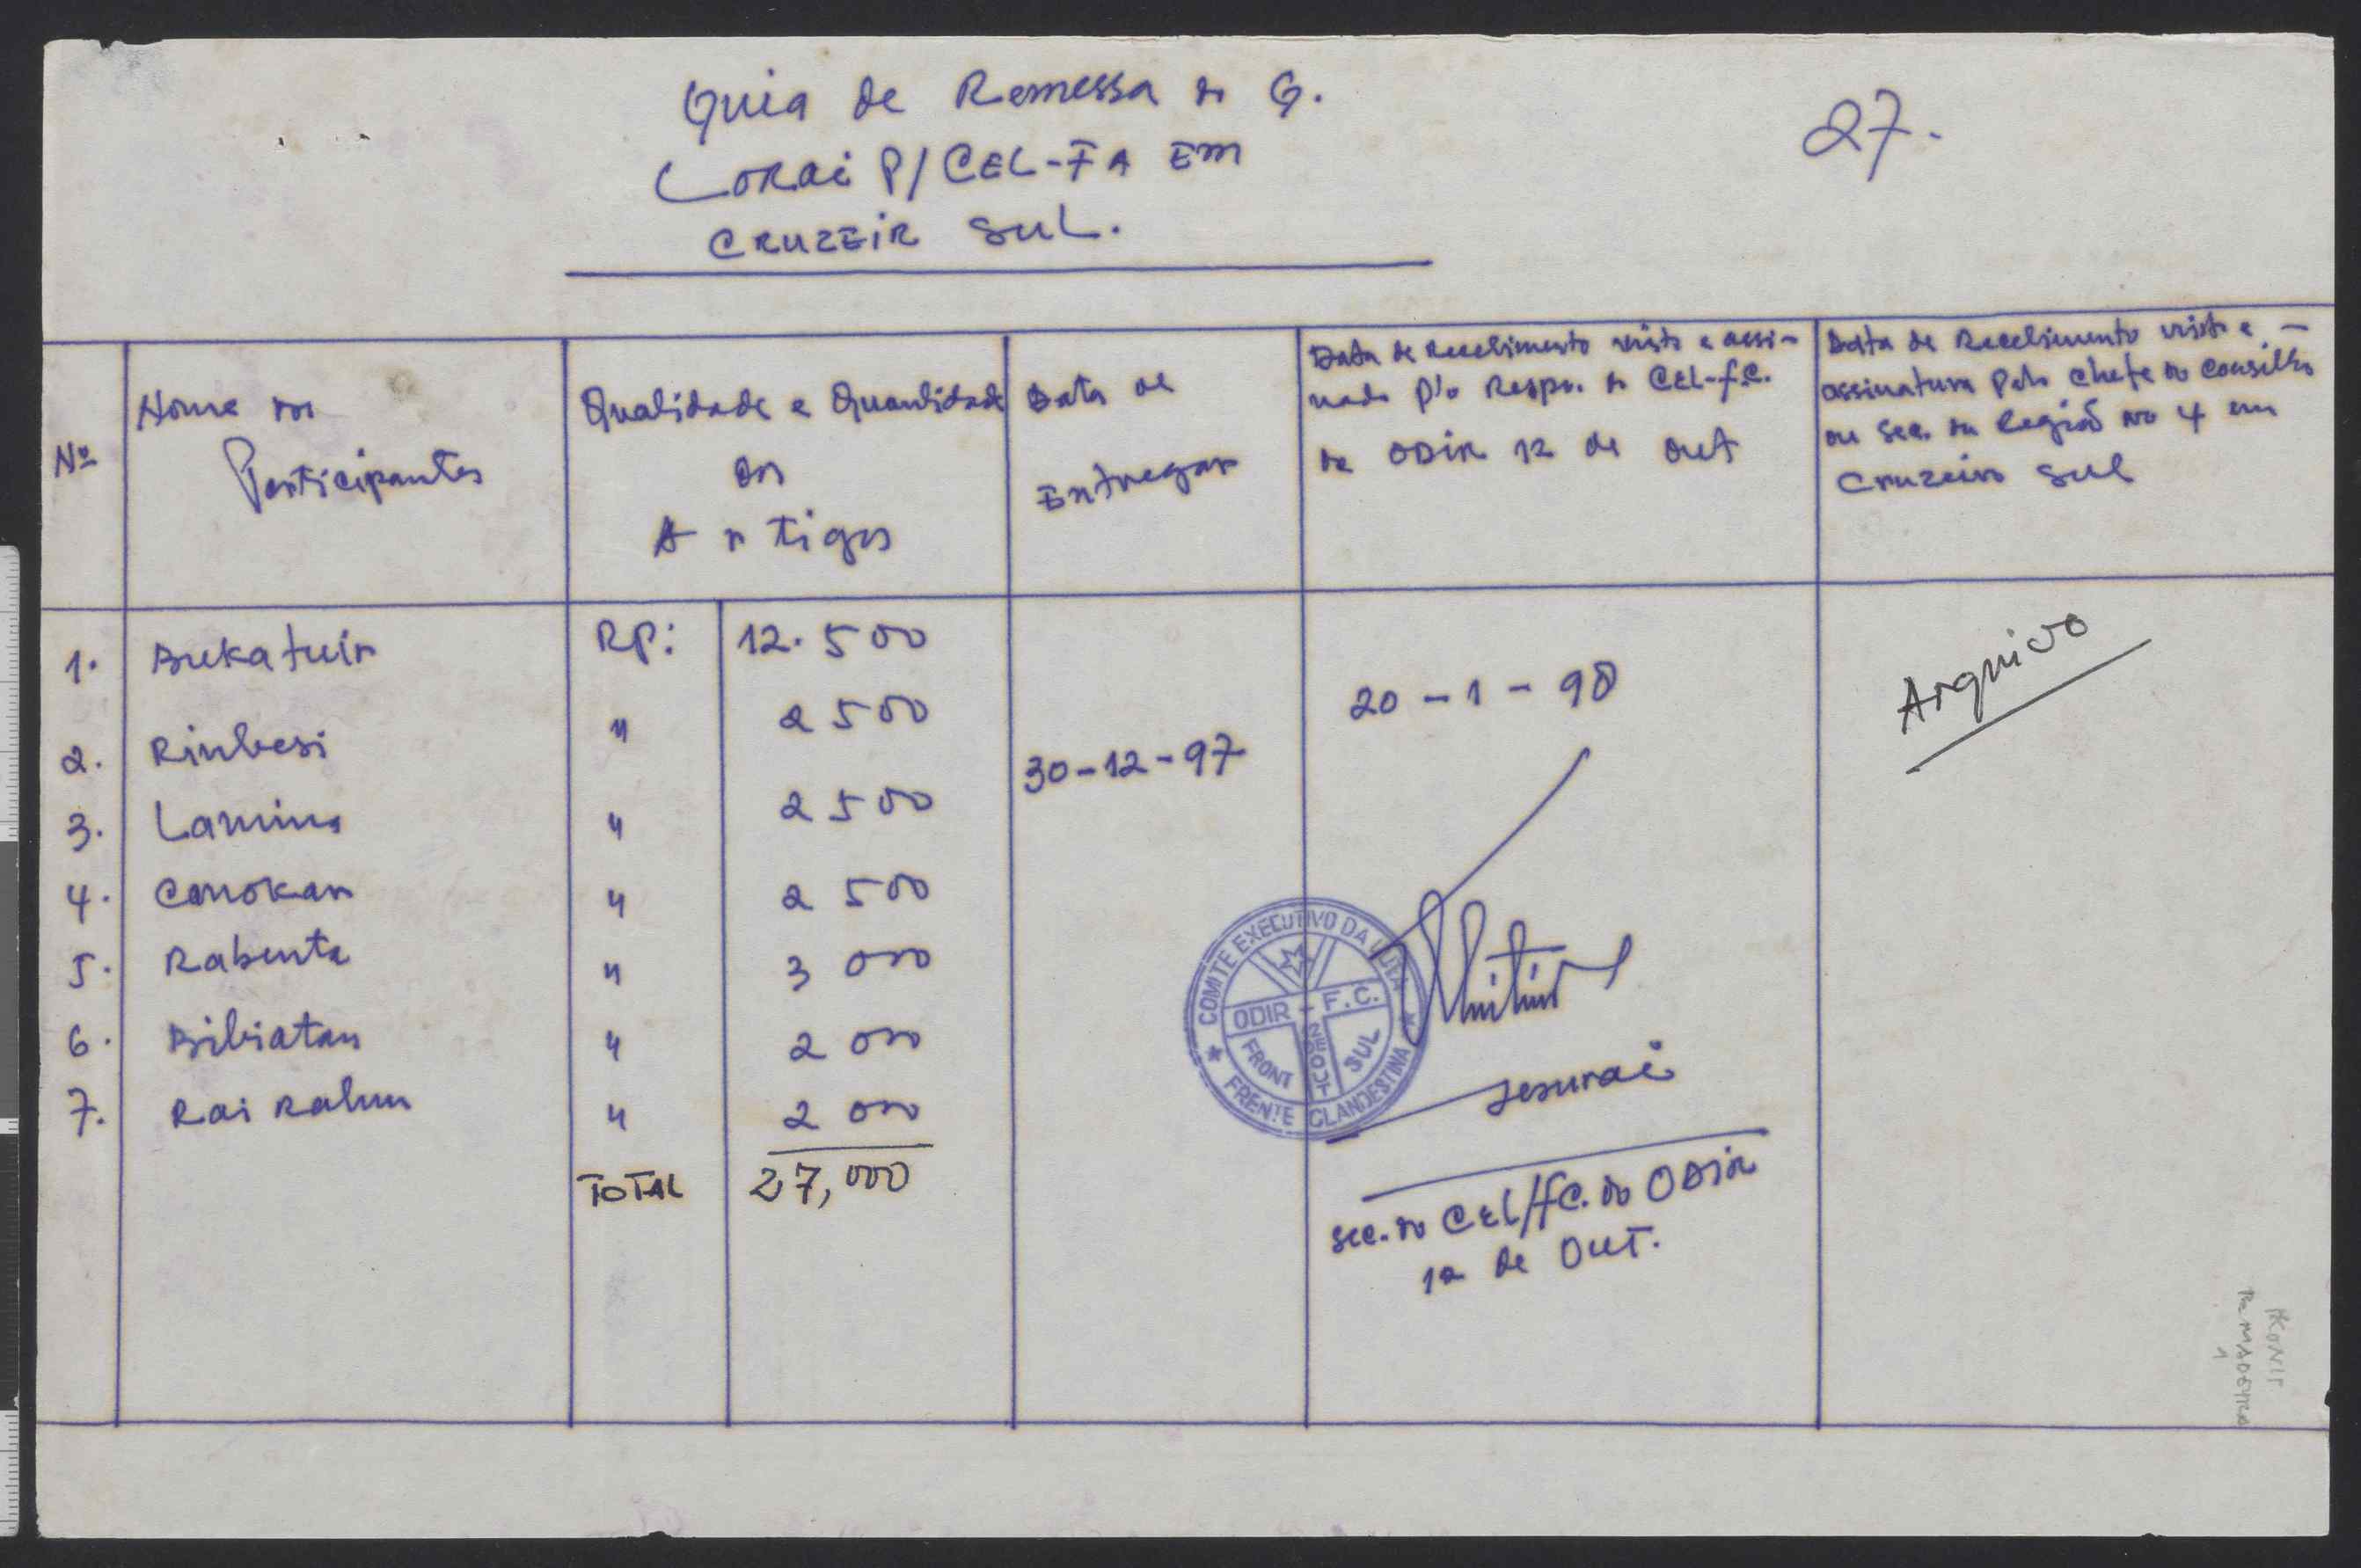 Guia de Remessa do G.
Lorai P/CEL-FA EM
CRUZEIR SUL.
27.
Nº
Nome dos
Participantes
Qualidade e Quantidade
dos
Artigos
Data de
Entregar
Data de Recebimento visto e assi-
nado p'lo Respo. do CEL-f.C.
de ODIR 12 de Out
Data de Recebimento visto e
assinatura Pelo Chefe do Conselho
ou Sec. da Região no 4 em
Cruzeiro Sul
1. Bukatuir RP: 12.500
2. Rinbesi " 2 500
3. Lamina " 2 500
4. Conokan " 2 500
5. Rabenta " 3 000
6. Bibiatan " 2 000
7. Rai Rahun " 2 000
TOTAL 27,000
30-12-97
20-1-98
Arquivo
COMITE EXECUTIVO DA LUTA
FRENTE CLANDESTINA
ODIR - F.C.
FRONT SUL
12 DE OUT
Sesurai
Sec. do CEL/fC. do ODIR
12 de OUT.